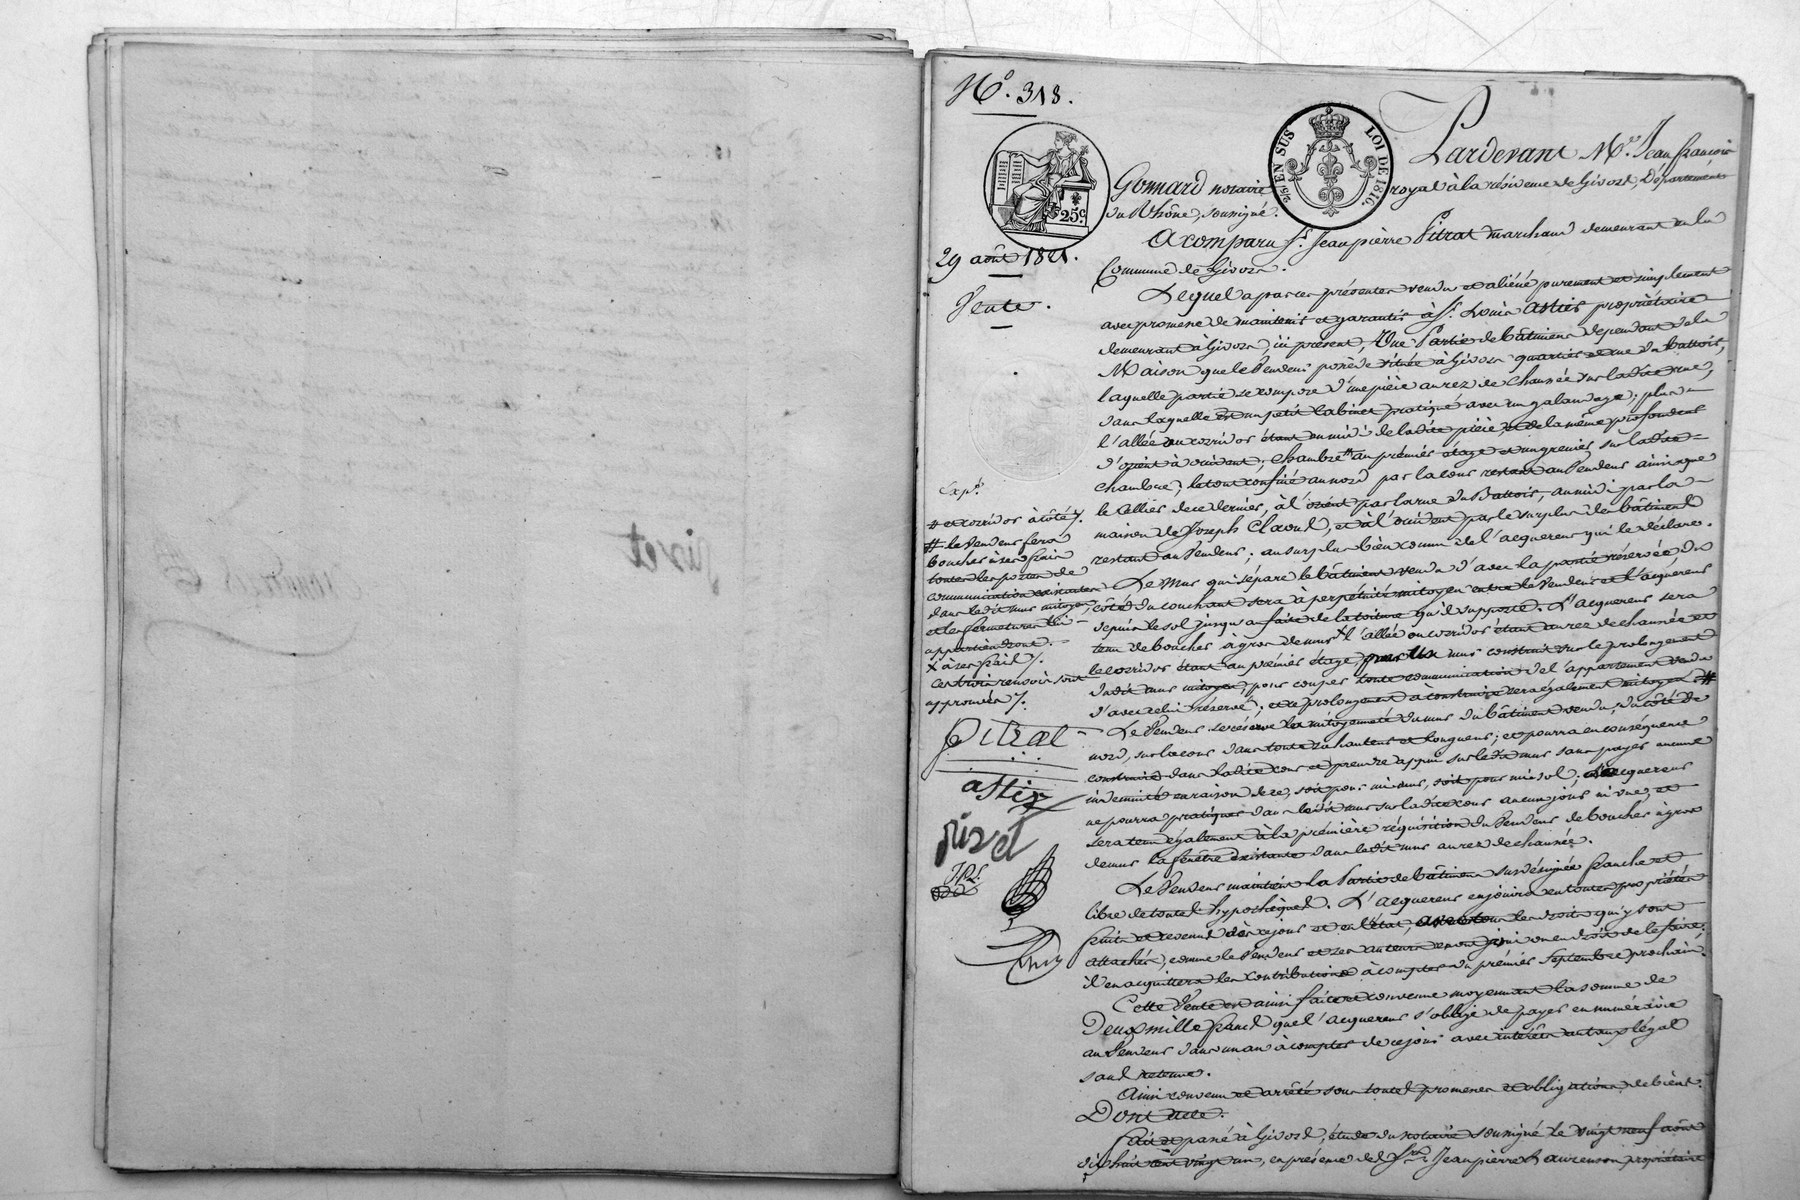 N.º 318.
25 c.
2/5 EN SUS
LOI DE 1816.
29 août 1821.
Vente.
Pardevant M.e Jean François
Gonnard notaire royal à la résidence de Givors, Département
du Rhône, soussigné.
A comparu S.r Jean pièrre Pitrat marchand demeurant en la
Commune de Givors.
Lequel a par ces présentes vendu et aliéné purement et simplement
avec promesse de maintenir et garantir à S.r Louis Astier propriétaire
demeurant à Givors, ici présent, Une Partie de bâtimens dépendant de la
Maison que le Vendeur possède située à Givors quartier et rue du Battoir,
laquelle partie se compose d'une pièce au rez de chaussée sur la dite rue,
dans laquelle est un petit Cabinet pratiqué avec un galandage; plus
l'allée ou corridor étant au midi de la dite pièce, et de la même profondeur
d'orient à occident; Chambre # au prémier étage et un grenier sur la dite
chambre; le tout confiné au nord par la cour restant au Vendeur ainsi que
le Cellier de ce dernier, à l'orient par la rue du Battoir, au midi par la
maison de Joseph Claoud, et à l'occident par le surplus de bâtiment
restant au Vendeur; au surplus bien connu de l'acquereur qui le déclare.
Le Mur qui sépare le bâtiment vendu d'avec la partie réservée du
côté du couchant sera à perpétuité mitoyen entre le Vendeur et l'acquéreur
depuis le sol jusqu'au faîte de la toiture qu'il supporte. L'acquereur sera
tenu de boucher à gros de murs X l'allée ou corridor étant au rez de chaussée et
le corridor étant au prémier étage, par un mur construit sur le prolongement
du dit mur mitoyen, pour couper toute communication de l'appartement vendu
d'avec celui réservé; et ce prolongement à construire sera également mitoyen #
Le Vendeur se réserve la mitoyenneté du mur du bâtiment vendu, du côté de
nord, sur la cour dans toute sa hauteur et longueur; et pourra en conséquence
construire dans la dite cour et prendre appui sur le dit mur sans payer aucune
indemnité en raison de ce, soit pour mi-mur, soit pour mi-sol; L'acquereur
ne pourra pratiquer dans le dit mur sur la dite cour aucun jour ni vue, et
sera tenu également à la première réquisition du Vendeur de boucher à gros
de mur la fenêtre existante dans le dit mur au rez de chaussée.
Le Vendeur maintient la Partie de bâtimens susdésignée franche et
libre de toutes hypothèques. L'acquereur en jouira en toute propriété
fruits et revenus dès ce jour et en l'état, avec tous les droits qui y sont
attachés, comme le Vendeur et ses auteurs en ont joui ou eu droit de le faire;
il en acquittera les contributions à compter du prémier Septembre prochain.
Cette Vente est ainsi faite et convenue moyennant la somme de
Deux mille francs que l'acquereur s'oblige de payer en numéraire
au Vendeur dans un an à compter de ce jour avec intérêts au taux légal
sans retenue.
Ainsi convenu et arrêté sous toutes promesses et obligations de biens.
Dont Acte.
Fait et passé à Givors, étude du notaire soussigné le vingt neuf août
dix huit cent vingt un, en présence des S.rs Jean pierre Laurenson propriétaire
Exp.é
# et corridor à côté /.
# le Vendeur fera
boucher à ses frais
toutes les portes de
communication existantes
dans le dit mur mitoyen,
et les fermetures lui
appartiendront.
X à ses frais /.
Ces trois renvois sont
approuvés /.
Pitrat
astier
jizet
JPL